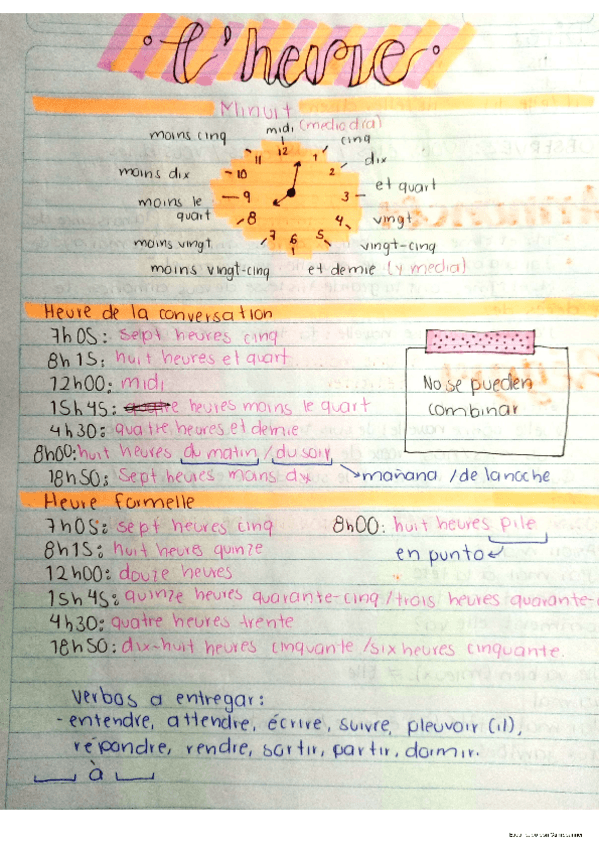 L'heure
Minuit
midi (mediodia)
moins cinq
cinq
moins dix
dix
moins le
quart
et quart
vingt
moins vingt
vingt-cinq
moins vingt-cinq
et demie (y media)
12
1
2
3
4
5
6
7
8
9
10
11
Heure de la conversation
7h05: sept heures cinq
8h15: huit heures et quart
12h00: midi
15h45: quatre heures moins le quart
4h30: quatre heures et demie
8h00: huit heures du matin / du soir
mañana / de la noche
18h50: sept heures moins dix
No se pueden
combinar
Heure formelle
7h05: sept heures cinq
8h00: huit heures pile
en punto
8h15: huit heures quinze
12h00: douze heures
15h45: quinze heures quarante-cinq / trois heures quarante-
4h30: quatre heures trente
18h50: dix-huit heures cinquante / six heures cinquante.
Verbos a entregar:
- entendre, attendre, écrire, suivre, pleuvoir (il),
répondre, rendre, sortir, partir, dormir.
à